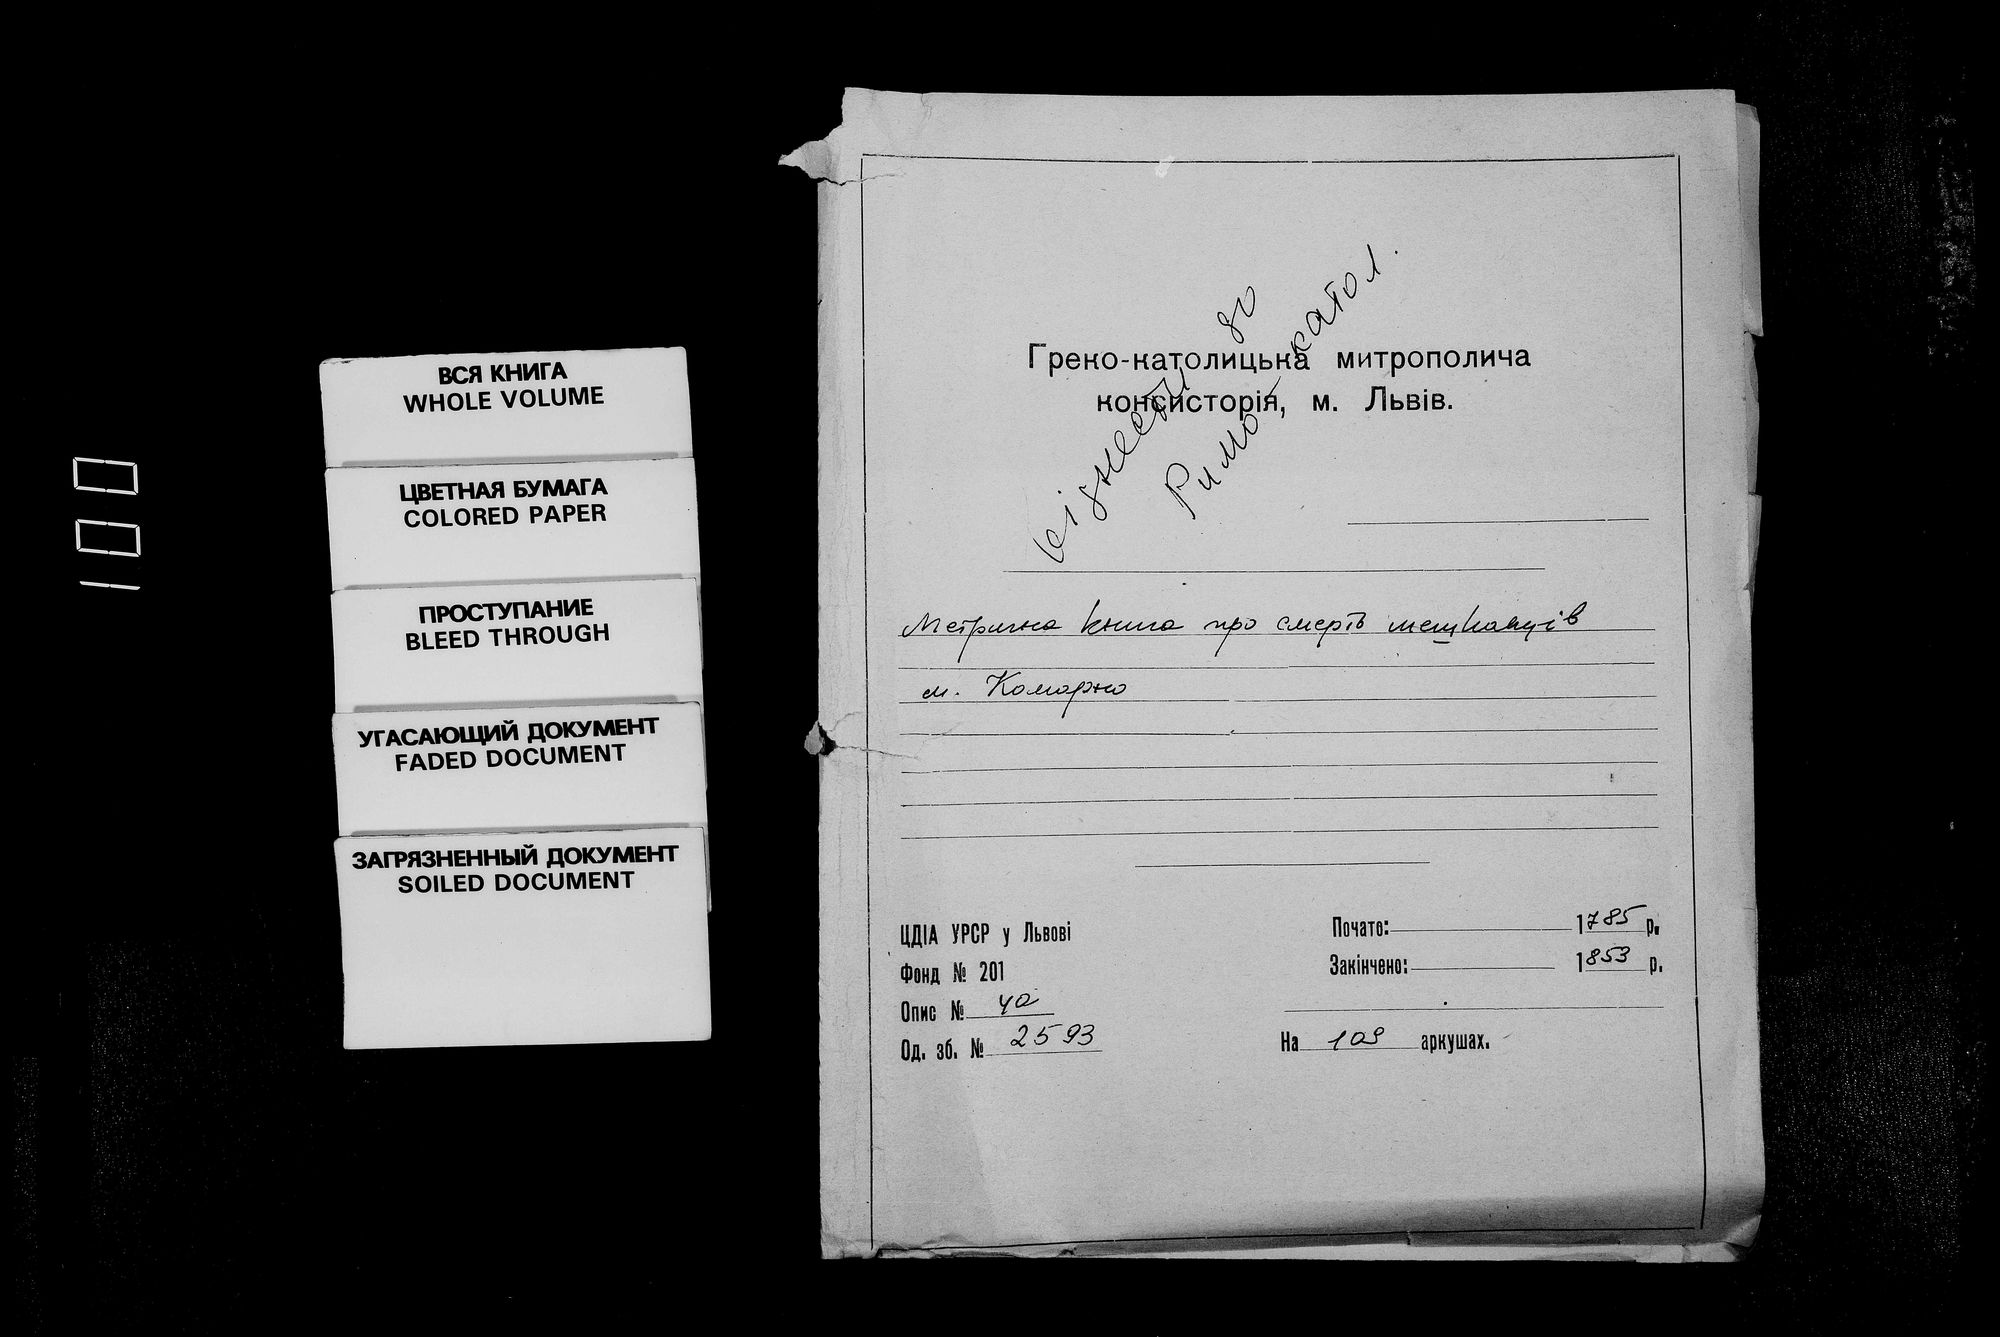 100
ВСЯ КНИГА
WHOLE VOLUME
ЦВЕТНАЯ БУМАГА
COLORED PAPER
ПРОСТУПАНИЕ
BLEED THROUGH
УГАСАЮЩИЙ ДОКУМЕНТ
FADED DOCUMENT
ЗАГРЯЗНЕННЫЙ ДОКУМЕНТ
SOILED DOCUMENT
віднести до
Римо-катол.
Греко-католицька митрополича
консисторія, м. Львів.
Метрична книга про смерть мешканців
м. Комарно
ЦДІА УРСР у Львові
Фонд № 201
Опис № 4а
Од. зб. № 2593
Почато: 1785 р.
Закінчено: 1853 р.
На 109 аркушах.